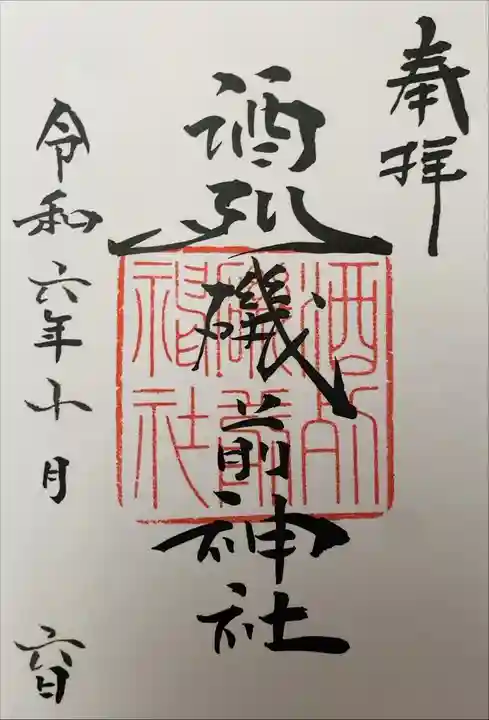 奉拝
酒列磯前神社
酒列
磯前
神社
令和六年十月
六日